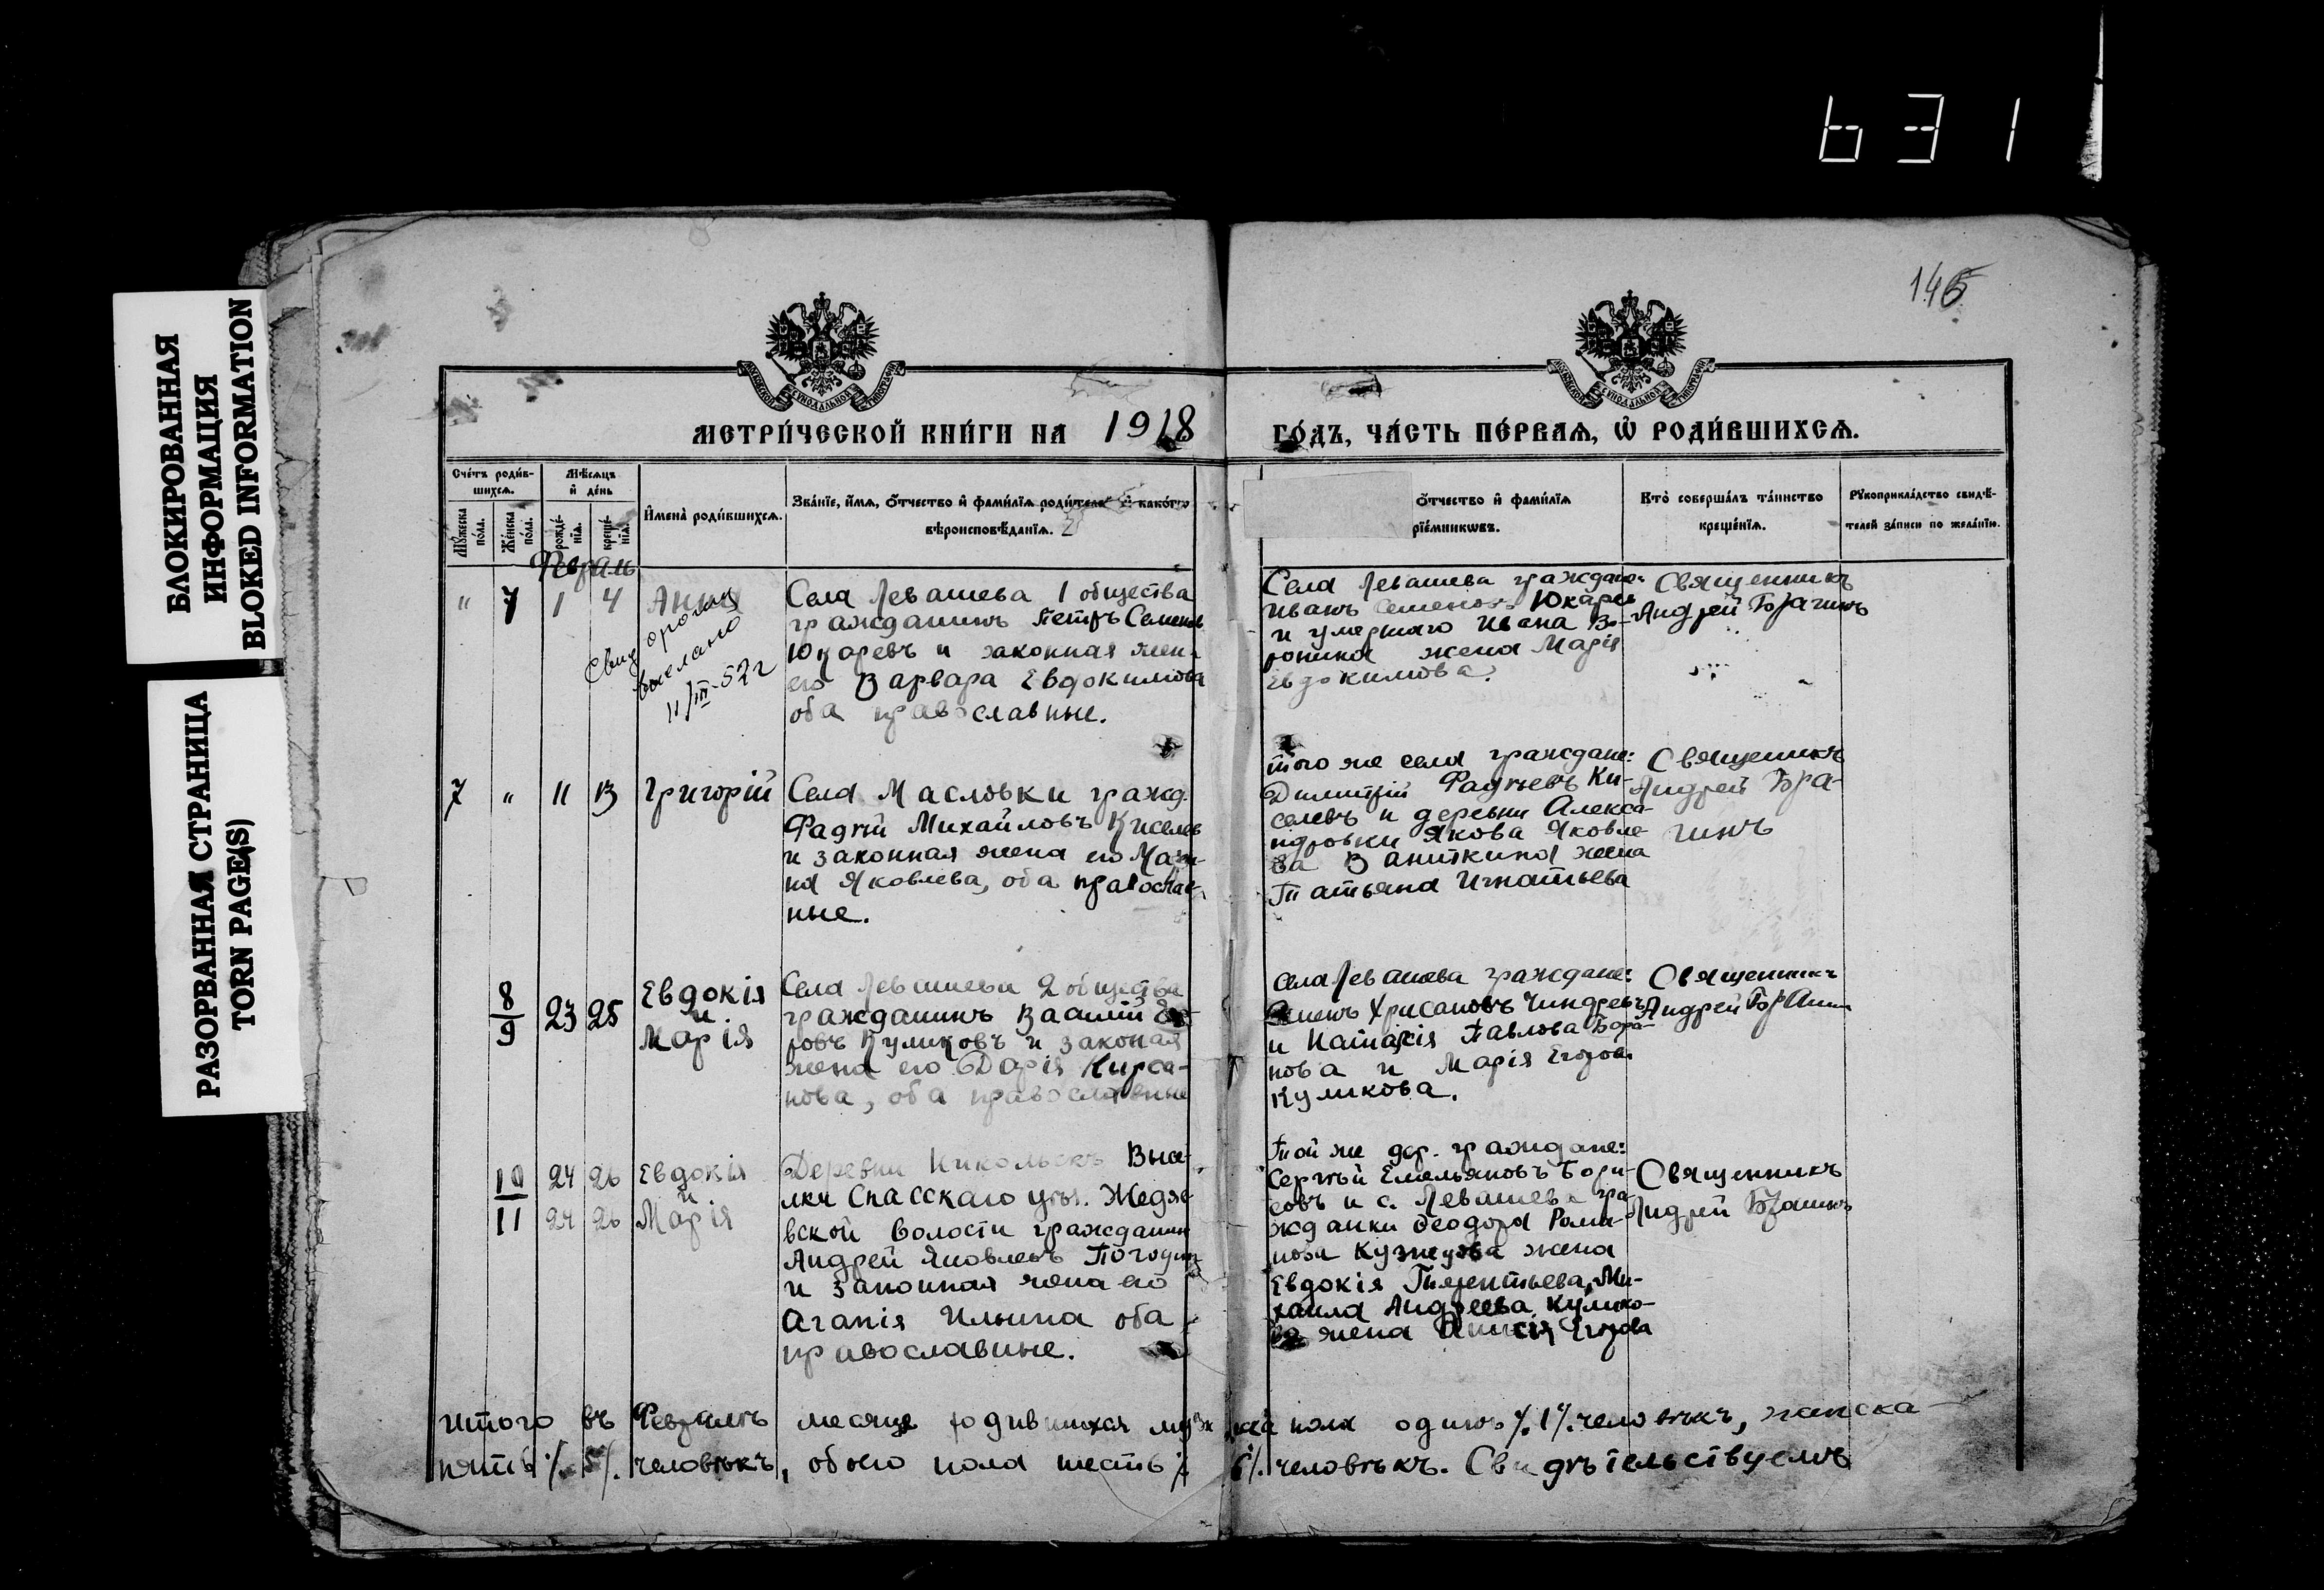 631
БЛОКИРОВАННАЯ
ИНФОРМАЦИЯ
BLOKED INFORMATION
РАЗОРВАННАЯ СТРАНИЦА
TORN PAGE(S)
146
МЕТРИ́ЧЕСКОЙ КНИ́ГИ НА 1918
ГО́ДЪ, ЧА́СТЬ ПЕ́РВАѦ, Ѡ РОДИ́ВШИХСѦ.
Сче́тъ роди́в-
шихсѧ.
Мѣ́сѧцъ
и҆ де́нь
Мꙋ́жеска
по́ла.
Же́нска
по́ла.
рожде́-
нїѧ.
креще́-
нїѧ.
И҆мена̀ роди́вшихсѧ.
Зва́нїе, и҆́мѧ, ѻ҆́тчество и҆ фами́лїѧ роди́телей и҆ како́гѡ
вѣроисповѣ́данїѧ.
ѻ҆́тчество и҆ фами́лїѧ
рїе́мникѡвъ.
Кто̀ соверша́лъ та́инство
креще́нїѧ.
Рꙋкоприкла́дство свидѣ́-
телей за́писи по жела́нїю.
Февраль
" 7 1 4 Анна
Свид
выслано
11/III-52 г
Села Левашева 1 общества
гражданинъ Петръ Семенов
Юкаревъ и законная жена
его Варвара Евдокимова
оба православные.
Села Левашева граждане:
Иванъ Семеновъ Юкарев
и умершаго Ивана Во-
ронина жена Марія
Евдокимова.
Священникъ
Андрей Брагинъ
7 " 11 13 Григорій
Села Масловки гражд.
Фадѣй Михайловъ Киселев
и законная жена его Мари-
на Яковлева, оба православ-
ные.
того же села граждане:
Димитрій Фадѣевъ Ки-
селевъ и деревни Алекса-
ндровки Якова Яковле-
ва Ваниткина жена
Татьяна Игнатьева
Священникъ
Андрей Бра-
гинъ
8
9
23 25 Евдокія
и
Марія
Села Левашева 2 общества
гражданинъ Василій
ровъ Куликовъ и законая
жена его Дарія Кирса-
нова, оба православные
села Левашева граждане:
Хрисановъ
и Павлова
нова и Марія Егорова
Куликова.
Священникъ
Андрей Брагинъ
10
11
24 26 Евдокія
и
24 26 Марія
Деревни Никольскъ Высе-
лки Спасскаго уѣз. Жедяе-
вской волости гражданин
Андрей Яковлевъ Погодин
и законная жена его
Агапія Ильина оба
православные.
Той же дер. граждане:
Сергѣй Емельяновъ Бори-
совъ и с. Левашева гра-
жданки Ѳеодора Рома-
нова Кузнецова жена
Евдокія Ми-
хаила Андреева Кулико-
ва жена Анисія Егорова
Священникъ
Андрей Брагинъ
Итого въ Февралѣ месяце родившихся мужска пола одинъ ./. 1 ./. человѣкъ, женска
пять ./. 5 ./. человѣкъ, обоего пола шесть ./. 6 ./. человѣкъ. Свидѣтельствуемъ